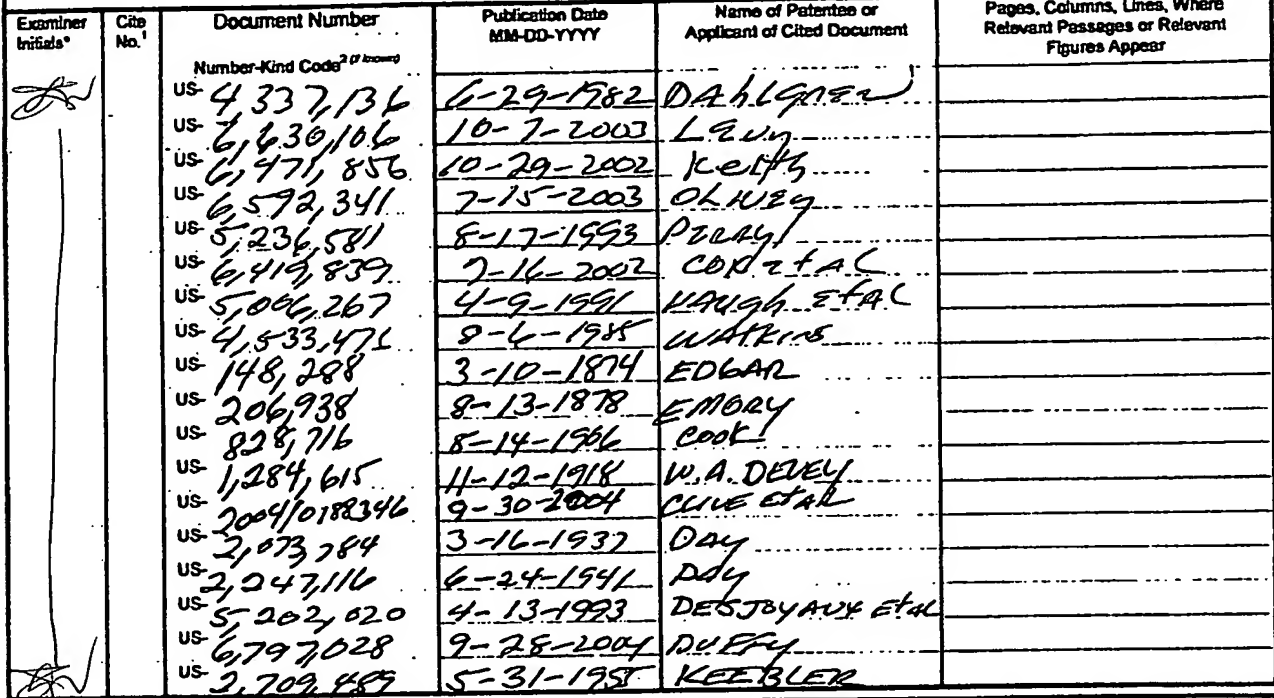 Examiner Initials* Cite No.1 Document Number Publication Date MM-DD-YYYY Name of Patentee or Applicant of Cited Document Pages, Columns, Lines, Where Relevant Passages or Relevant Figures Appear
Number-Kind Code2 (if known)
US- 4,337,136 6-29-1982 DAhlgren
US- 6,630,106 10-7-2003 Levy
US- 6,471,856 10-29-2002 Keith
US- 6,592,341 7-15-2003 OLNEY
US- 5,236,581 8-17-1993 PERRY
US- 6,419,839 7-16-2002 COX et AL
US- 5,006,267 4-9-1991 VAUGh EtAL
US- 4,533,471 8-6-1985 WATKINS
US- 148,288 3-10-1874 EDGAR
US- 206,938 8-13-1878 EMORY
US- 828,716 8-14-1906 COOK
US- 1,284,615 11-12-1918 W.A. DEVEY
US- 2004/0188346 9-30-2004 CLIVE EtAL
US- 2,073,784 3-16-1937 DAY
US- 2,247,116 6-24-1941 DAY
US- 5,202,020 4-13-1993 DESJOYAUX EtAL
US- 6,797,028 9-28-2004 DUFFY
US- 2,709,489 5-31-1955 KEEBLER